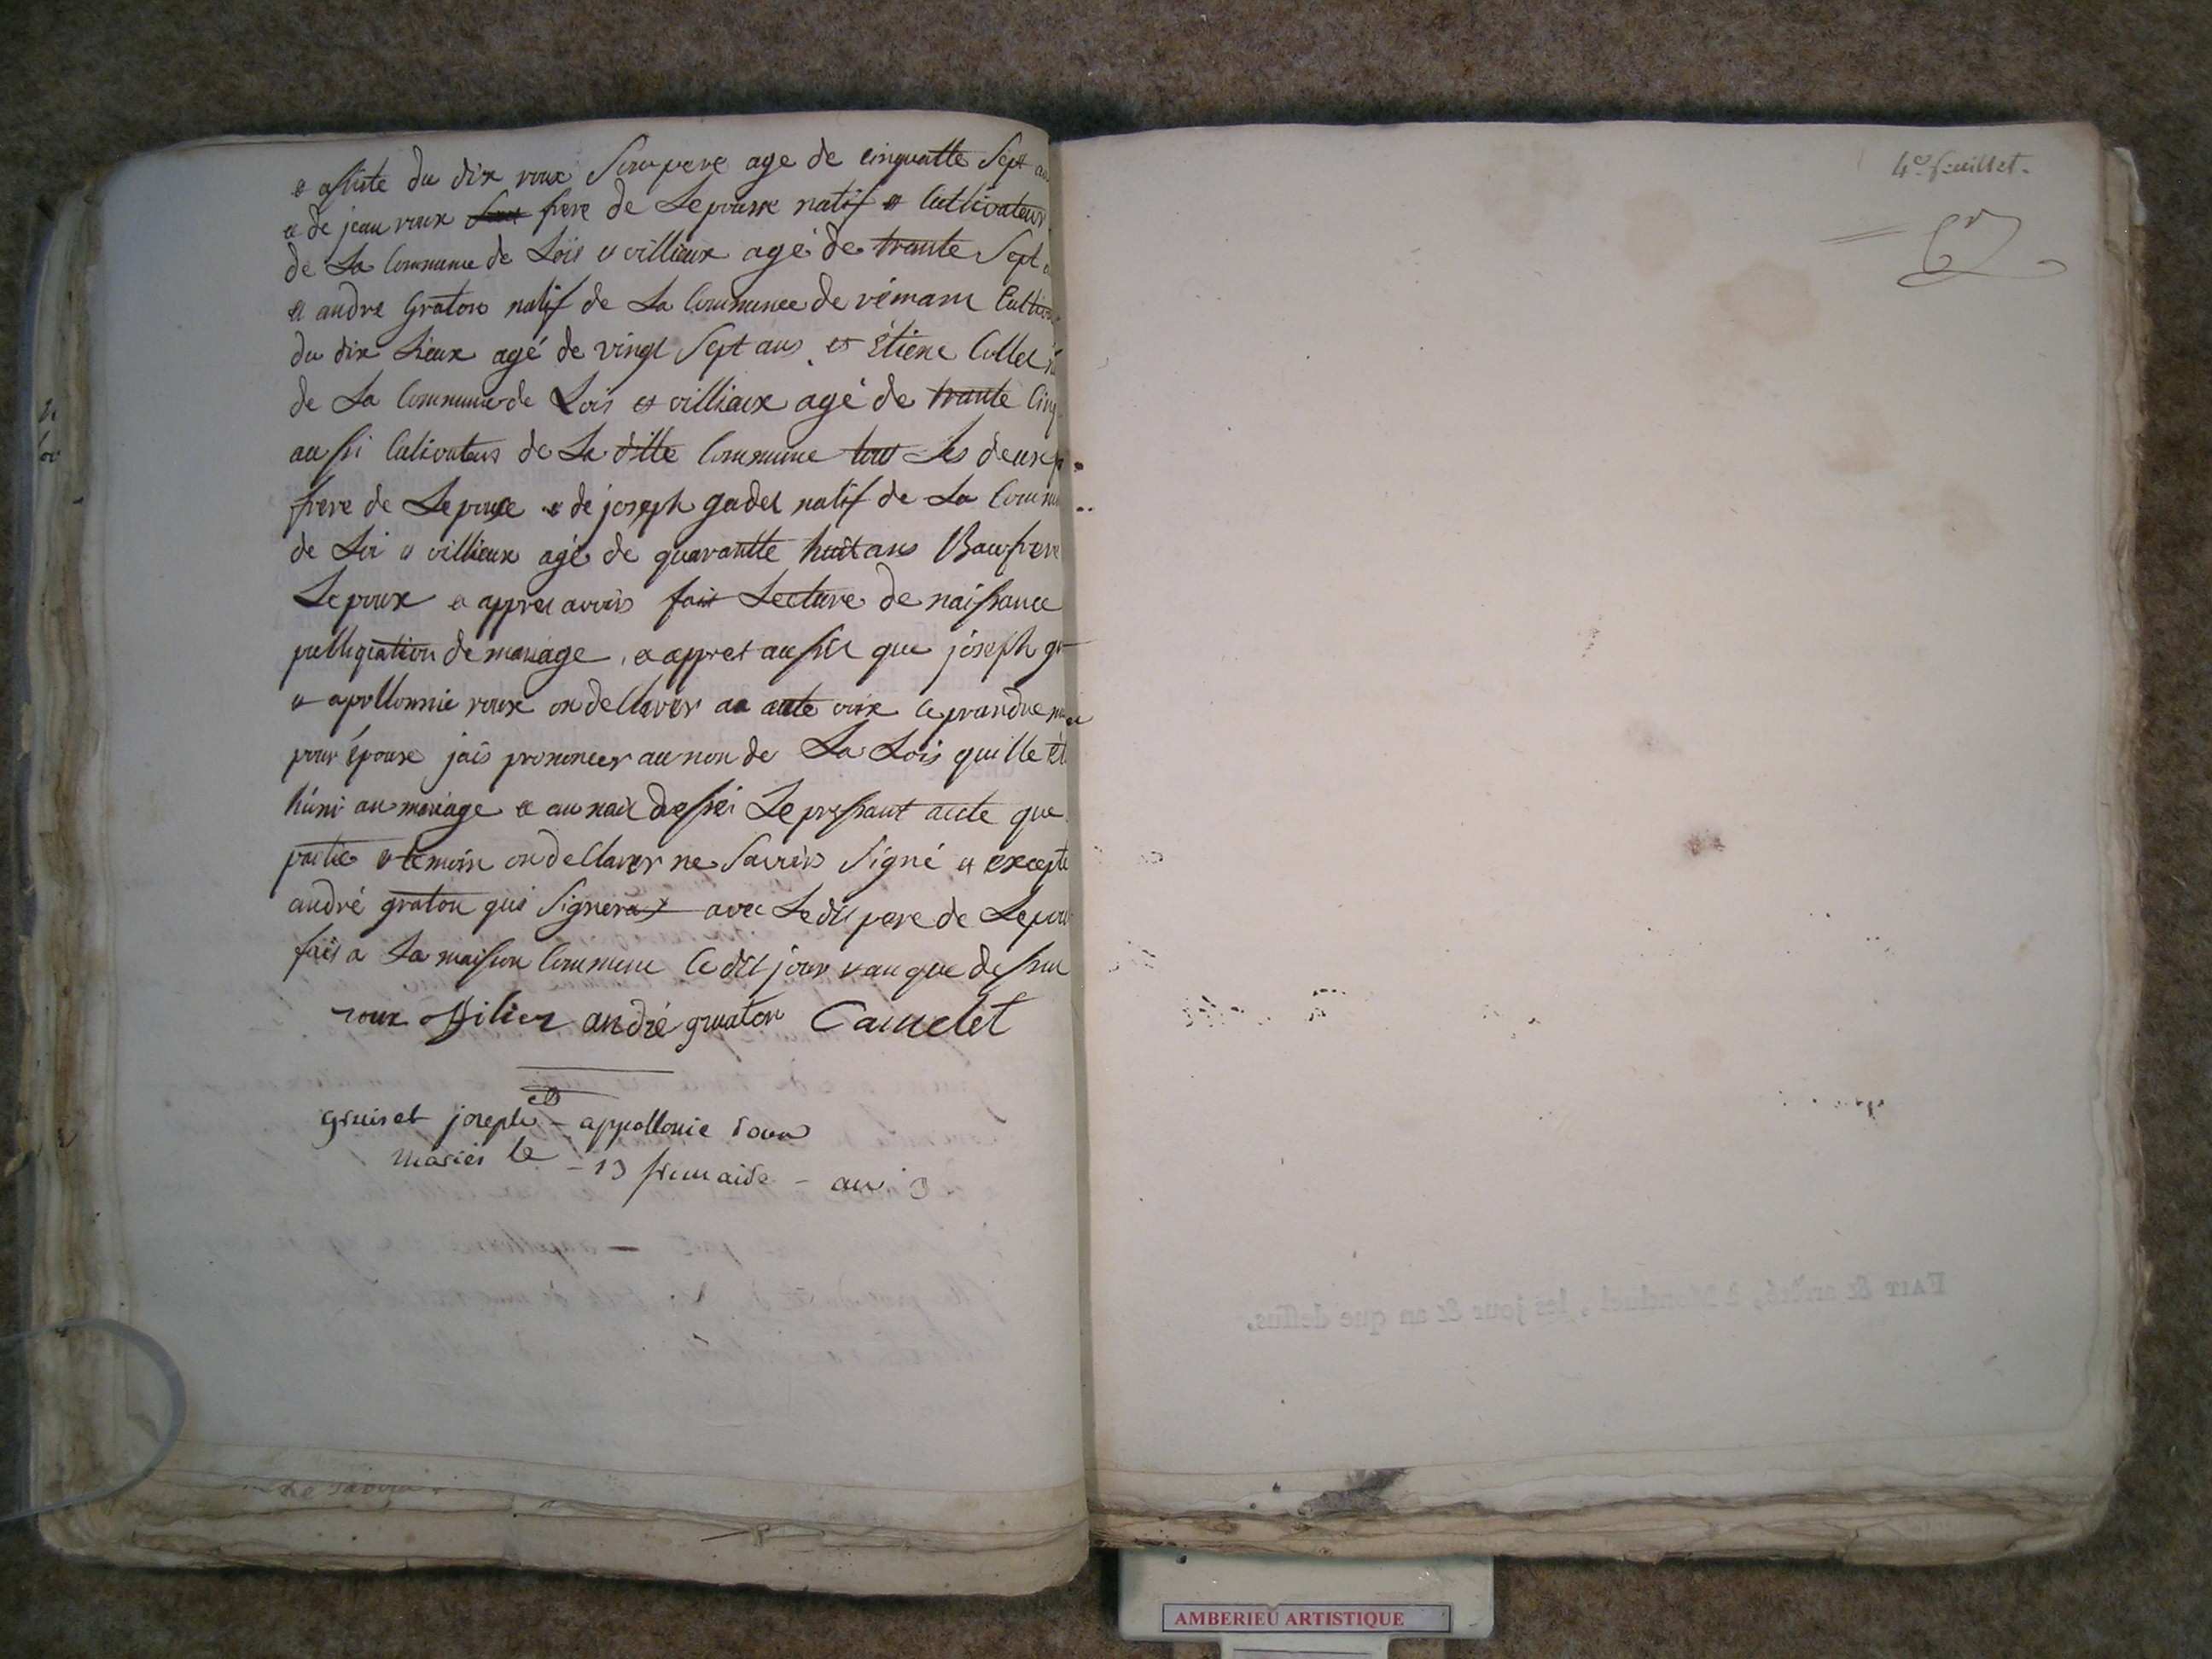 et assiste du dix roux Son pere age de cinquatte Sept
et de jean roux frere de Lepousse natif et Cultivateur
de La Commune de Lois et villieux agé de trante Sept
et andre Graton natif de La Commune de
du dix Lieux agé de vingt Sept ans et Étiene Collet
de La Commune de Lois et villiaux agé de trante Cinq
au ssi Culivateurs de La ditte Commune tous Les deux
frere de Lepouse et de joseph gadet natif de La Comm
de Loi et villieux agé de quarantte huit ans Baufrere
Lepoux et appres avoirs fait Lecture de naissance
pubbliqiation de mariage, et appres aussit que joseph gr
et apollonnie roux on dellarer au aute voix Ce prandre
pour épouse jais prononcer au non de La Lois quille ét
húni au mariage et au nait dressér Le pressant acte que
partie et temoin on dellarer ne Savoirs Signé et excepté
andré graton quis Signera avec Ledit pere de Lepou
fait a La maison Commune Ce dit jour et an que dessus
roux andré graton Camelet
gruiset joseph - appollonie roux
mariés le - 13 frimaire - an 3
4e feuillet.
FAIT & arrêté, à Montluel, les jour & an que dessus.
AMBERIEU ARTISTIQUE